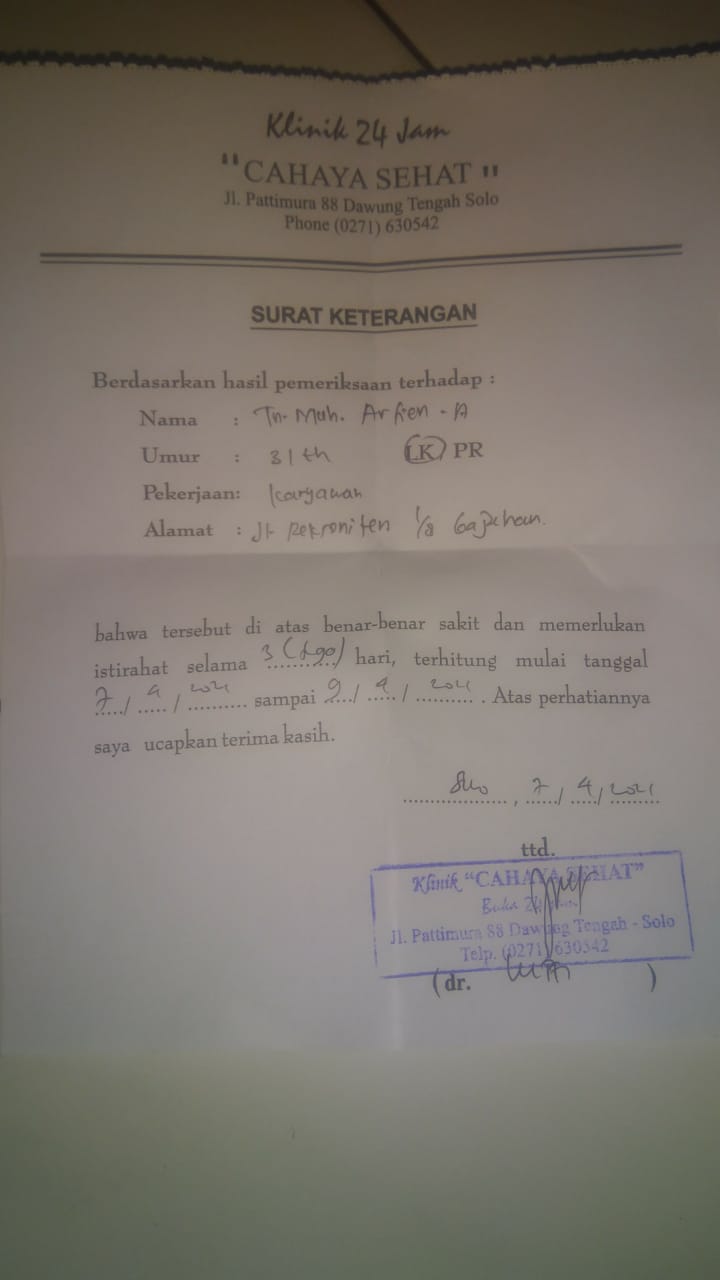 Klinik 24 Jam
"CAHAYA SEHAT"
Jl. Pattimura 88 Dawung Tengah Solo
Phone (0271) 630542
SURAT KETERANGAN
Berdasarkan hasil pemeriksaan terhadap :
Nama : Tn. Muh. A
Umur : 31 th LK/PR
Pekerjaan: karyawan
Alamat : Jl 1/8
bahwa tersebut di atas benar-benar sakit dan memerlukan
istirahat selama 3 (tiga) hari, terhitung mulai tanggal
7 / 4 / 2021 sampai 9 / 4 / 2021 . Atas perhatiannya
saya ucapkan terima kasih.
Solo, 7 / 4 / 2021
ttd.
Klinik "CAHAYA SEHAT"
Buka 24 Jam
Jl. Pattimura 88 Dawung Tengah - Solo
Telp. (0271) 630542
(dr. )